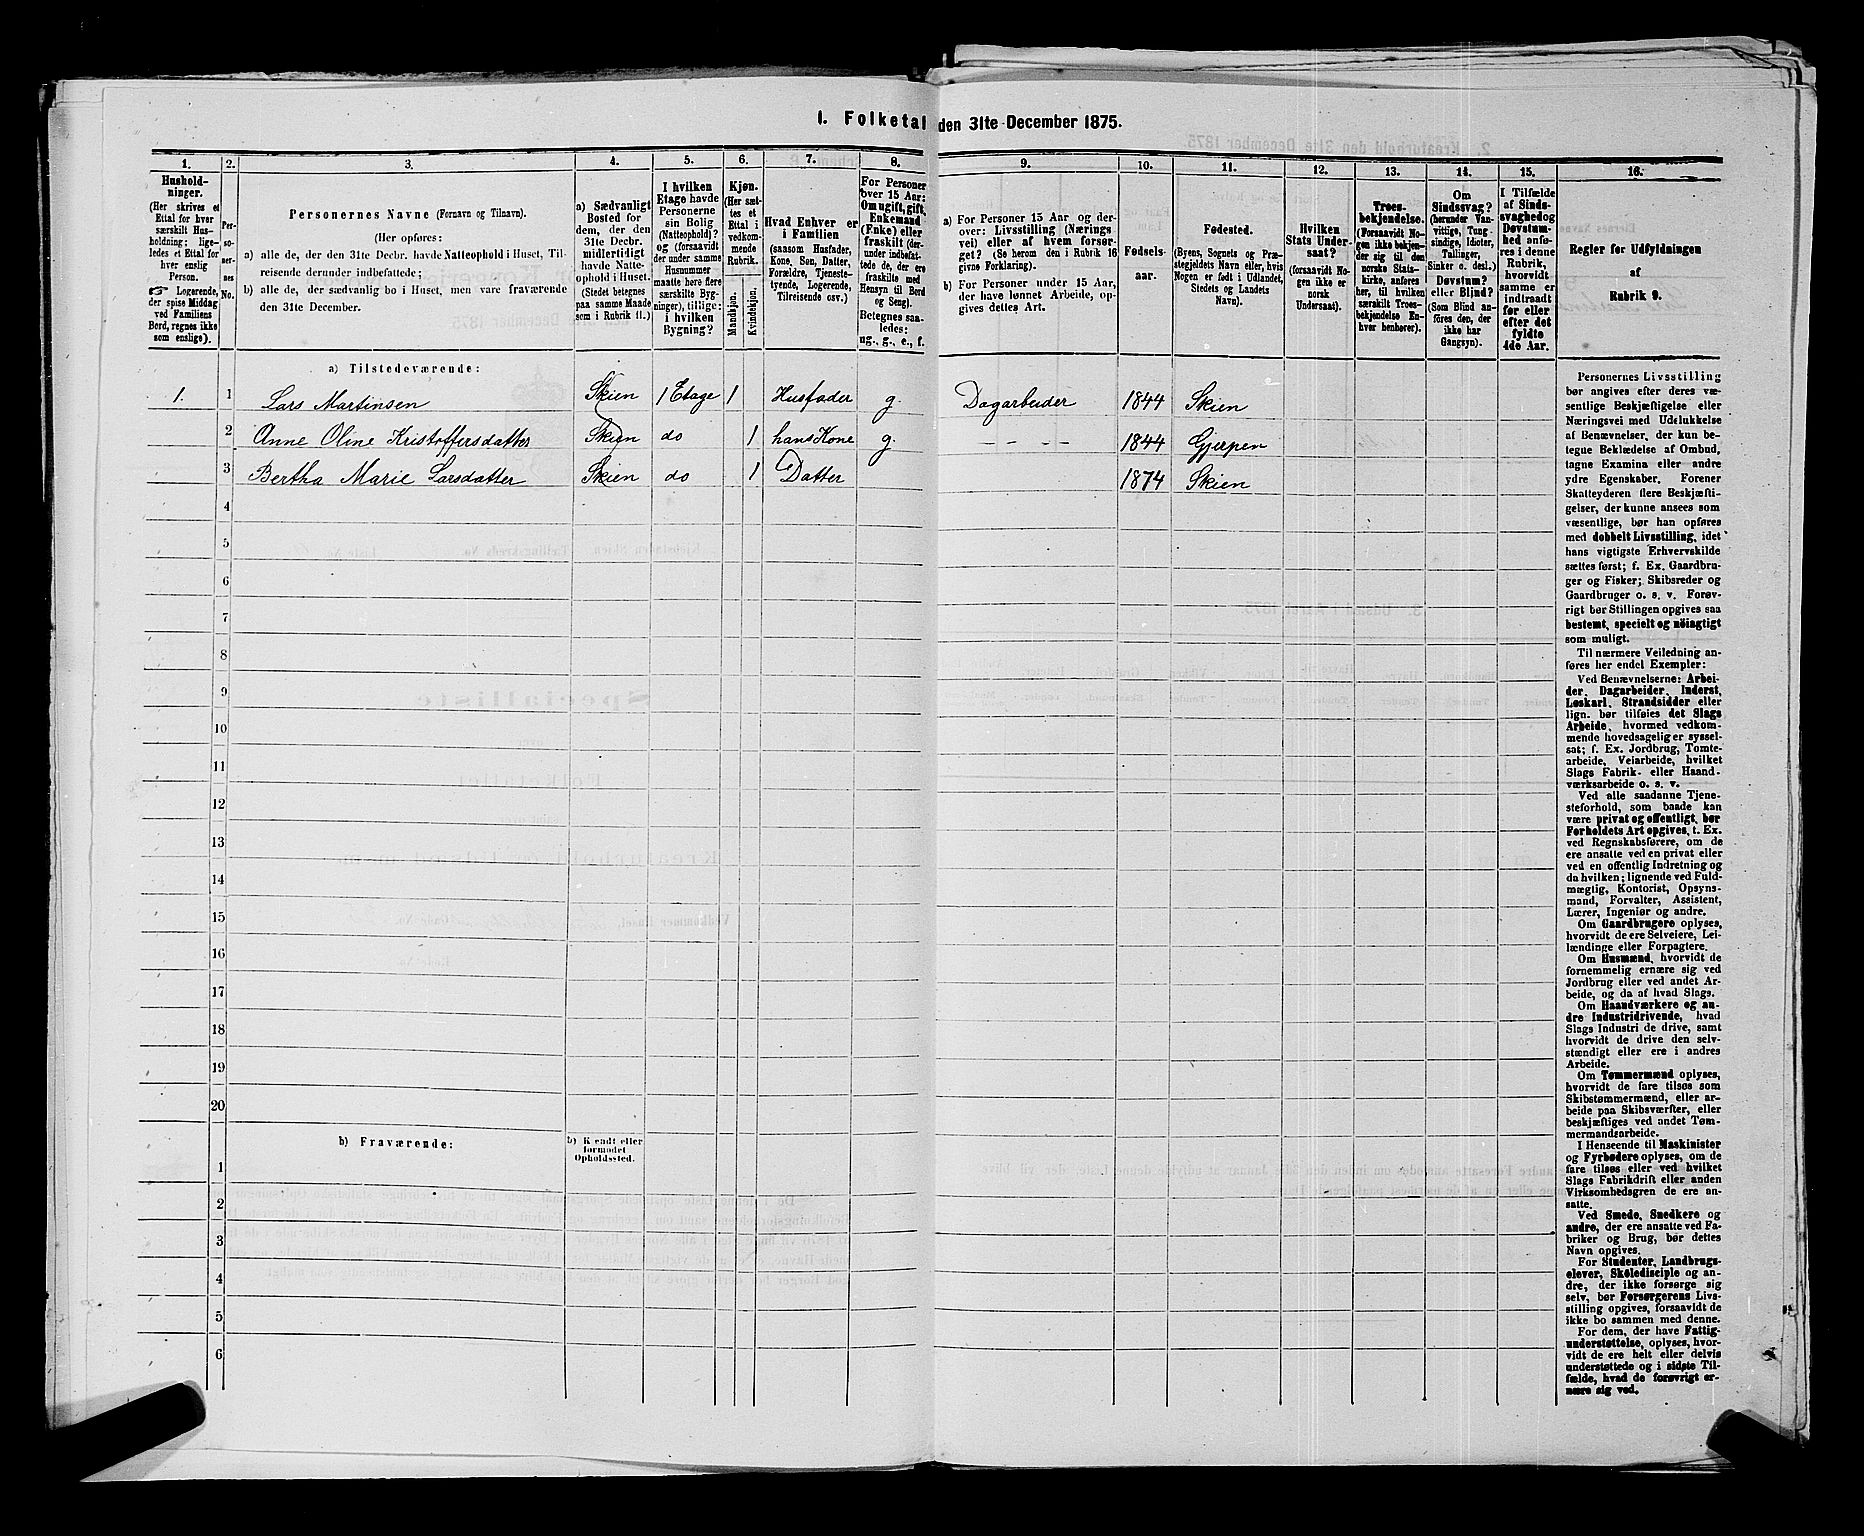 1. Folketal den 31te December 1875.
1. 2. 3. 4. 5. 6. 7. 8. 9. 10. 11. 12. 13. 14. 15. 16.
Hushold-
ninger.
(Her skrives et
Ettal for hver
særskilt Hus-
holdning; lige-
ledes et Ettal for
hver enslig
Person.
☞ Logerende,
der spise Middag
ved Familiens
Bord, regnes ikke
som enslige).
Per-
so-
ner-
nes
No.
Personernes Navne (Fornavn og Tilnavn).
(Her opføres:
a) alle de, der den 31te Decbr. havde Natteophold i Huset, Til-
reisende derunder indbefattede;
b) alle de, der sædvanlig bo i Huset, men vare fraværende
den 31te December.
a) Sædvanligt
Bosted for
dem, der den
31te Decbr.
midlertidigt
havde Natte-
ophold i Huset.
(Stedet betegnes
paa samme Maade
som i Rubrik 11.)
I hvilken
Etage havde
Personerne
sin Bolig
(Natteophold)?
og (forsaavidt
der under samme
Husnummer
maatte høre flere
særskilte Byg-
ninger), tillige:
i hvilken
Bygning?
Kjøn.
(Her sæt-
tes et
Ettal i
vedkom-
mende
Rubrik.
Mandkjøn.
Kvindekjøn.
Hvad Enhver er
i Familien
(saasom Husfader,
Kone, Søn, Datter,
Forældre, Tjeneste-
tyende, Logerende,
Tilreisende osv.)
For Personer
over 15 Aar:
Om ugift, gift,
Enkemand
(Enke) eller
fraskilt (der-
under indbefat-
tede de, der ere
fraskilte med
Hensyn til Bord
og Seng).
Betegnes saa-
ledes:
ug., g., e., f.
a) For Personer 15 Aar og der-
over: Livsstilling (Nærings
vei) eller af hvem forsør-
get? (Se herom den i Rubrik 16
givne Forklaring).
b) For Personer under 15 Aar,
der have lønnet Arbeide, op-
gives dettes Art.
Fødsels-
aar.
Fødested.
(Byens, Sognets og Præ-
stegjeldets Navn eller, hvis
Nogen er født i Udlandet,
Stedets og Landets
Navn).
Hvilken
Stats Under-
saat?
(forsaavidt No-
gen ikke er
norsk
Undersaat).
Troes-
bekjendelse.
(Forsaavidt No-
gen ikke bekjen-
der sig til den
norske Stats-
kirke, anføres
her, til hvilken
særskilt Troes-
bekjendelse En-
hver henhører).
Om
Sindssvag?
(herunder Van-
vittige, Tung-
sindige, Idioter,
Tullinger,
Sinker o. desl.)
Døvstum?
eller Blind?
(Som Blind an-
føres den, der
ikke har
Gangsyn).
I Tilfælde
af Sinds-
svaghed og
Døvstum-
hed anfø-
res i denne
Rubrik,
hvorvidt
samme er
indtraadt
før eller
efter det
fyldte
4de Aar.
Regler for Udfyldningen
af
Rubrik 9.
a) Tilstedeværende:
1. 1 Lars Martinsen Skien 1 Etage 1 Husfader g. Dagarbeider 1844 Skien
2 Anne Oline Kristoffersdatter Skien do 1 hans Kone g. — — — 1844 Gjerpen
3 Bertha Marie Larsdatter Skien do 1 Datter 1874 Skien
4
5
6
7
8
9
10
11
12
13
14
15
16
17
18
19
20
b) Fraværende: b) Kjendt eller
formodet
Opholdssted.
1
2
3
4
5
6
Personernes Livsstilling
bør angives efter deres væ-
sentlige Beskjæftigelse eller
Næringsvei med Udelukkelse
af Benævnelser, der kun be-
tegne Beklædelse af Ombud,
tagne Examina eller andre
ydre Egenskaber. Forener
Skatteyderen flere Beskjæfti-
gelser, der kunne ansees som
væsentlige, bør han opføres
med dobbelt Livsstilling, idet
hans vigtigste Erhvervskilde
sættes først; f. Ex. Gaardbru-
ger og Fisker; Skibsreder og
Gaardbruger o. s. v. Forøv-
rigt bør Stillingen opgives saa
bestemt, specielt og nöiagtigt
som muligt.
Til nærmere Veiledning an-
føres her endel Exempler:
Ved Benævnelserne: Arbei-
der, Dagarbeider, Inderst,
Løskarl, Strandsidder eller
lign. bør tilføies det Slags
Arbeide, hvormed vedkom-
mende hovedsagelig er syssel-
sat; f. Ex. Jordbrug, Tomte-
arbeide, Veiarbeide, hvilket
Slags Fabrik- eller Haand-
værksarbeide o. s. v.
Ved alle saadanne Tjene-
steforhold, som baade kan
være privat og offentligt, bør
Forholdets Art opgives, t. Ex.
ved Regnskabsførere, om de
ere ansatte ved en privat eller
ved en offentlig Indretning og
da hvilken; lignende ved Fuld-
mægtig, Kontorist, Opsyns-
mand, Forvalter, Assistent,
Lærer, Ingeniør og andre.
Om Gaardbrugere oplyses,
hvorvidt de ere Selveiere, Lei-
lændinge eller Forpagtere.
Om Husmænd, hvorvidt de
fornemmelig ernære sig ved
Jordbrug eller ved andet Ar-
beide, og da af hvad Slags.
Om Haandværkere og an-
dre Industridrivende, hvad
Slags Industri de drive, samt
hvorvidt de drive den selv-
stændigt eller ere i andres
Arbeide.
Om Tømmermænd oplyses,
hvorvidt de fare tilsøs som
Skibstømmermænd, eller ar-
beide paa Skibsværfter, eller
beskjæftiges ved andet Tøm-
mermandsarbeide.
I Henseende til Maskinister
og Fyrbødere oplyses, om de
fare tilsøs eller ved hvilket
Slags Fabrikdrift eller anden
Virksomhedsgren de ere an-
satte.
Ved Smede, Snedkere og
andre, der ere ansatte ved Fa-
briker og Brug, bør dettes
Navn opgives.
For Studenter, Landbrugs-
elever, Skoledisciple og an-
dre, der ikke forsørge sig
selv, bør Forsørgerens Livs-
stilling opgives, forsaavidt de
ikke bo sammen med denne.
For dem, der have Fattig-
understøttelse, oplyses, hvor-
vidt de ere helt eller delvis
understøttede og i sidste Til-
fælde, hvad de forøvrigt er-
nære sig ved.